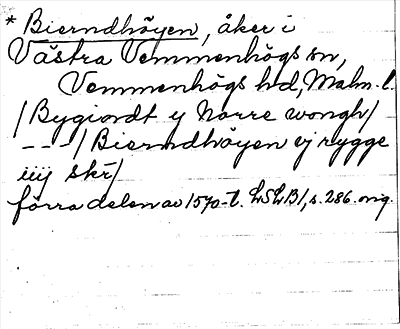 * Bierndhöyen, åker i
Västra Vemmenhögs sn,
Vemmenhögs hd, Malm. l.
/Bygiordt y Norre wongh/
---/Bierndhöyen ej rygge
iiij skr/
förra delen av 1570-t. LSLB1, s. 286. orig.